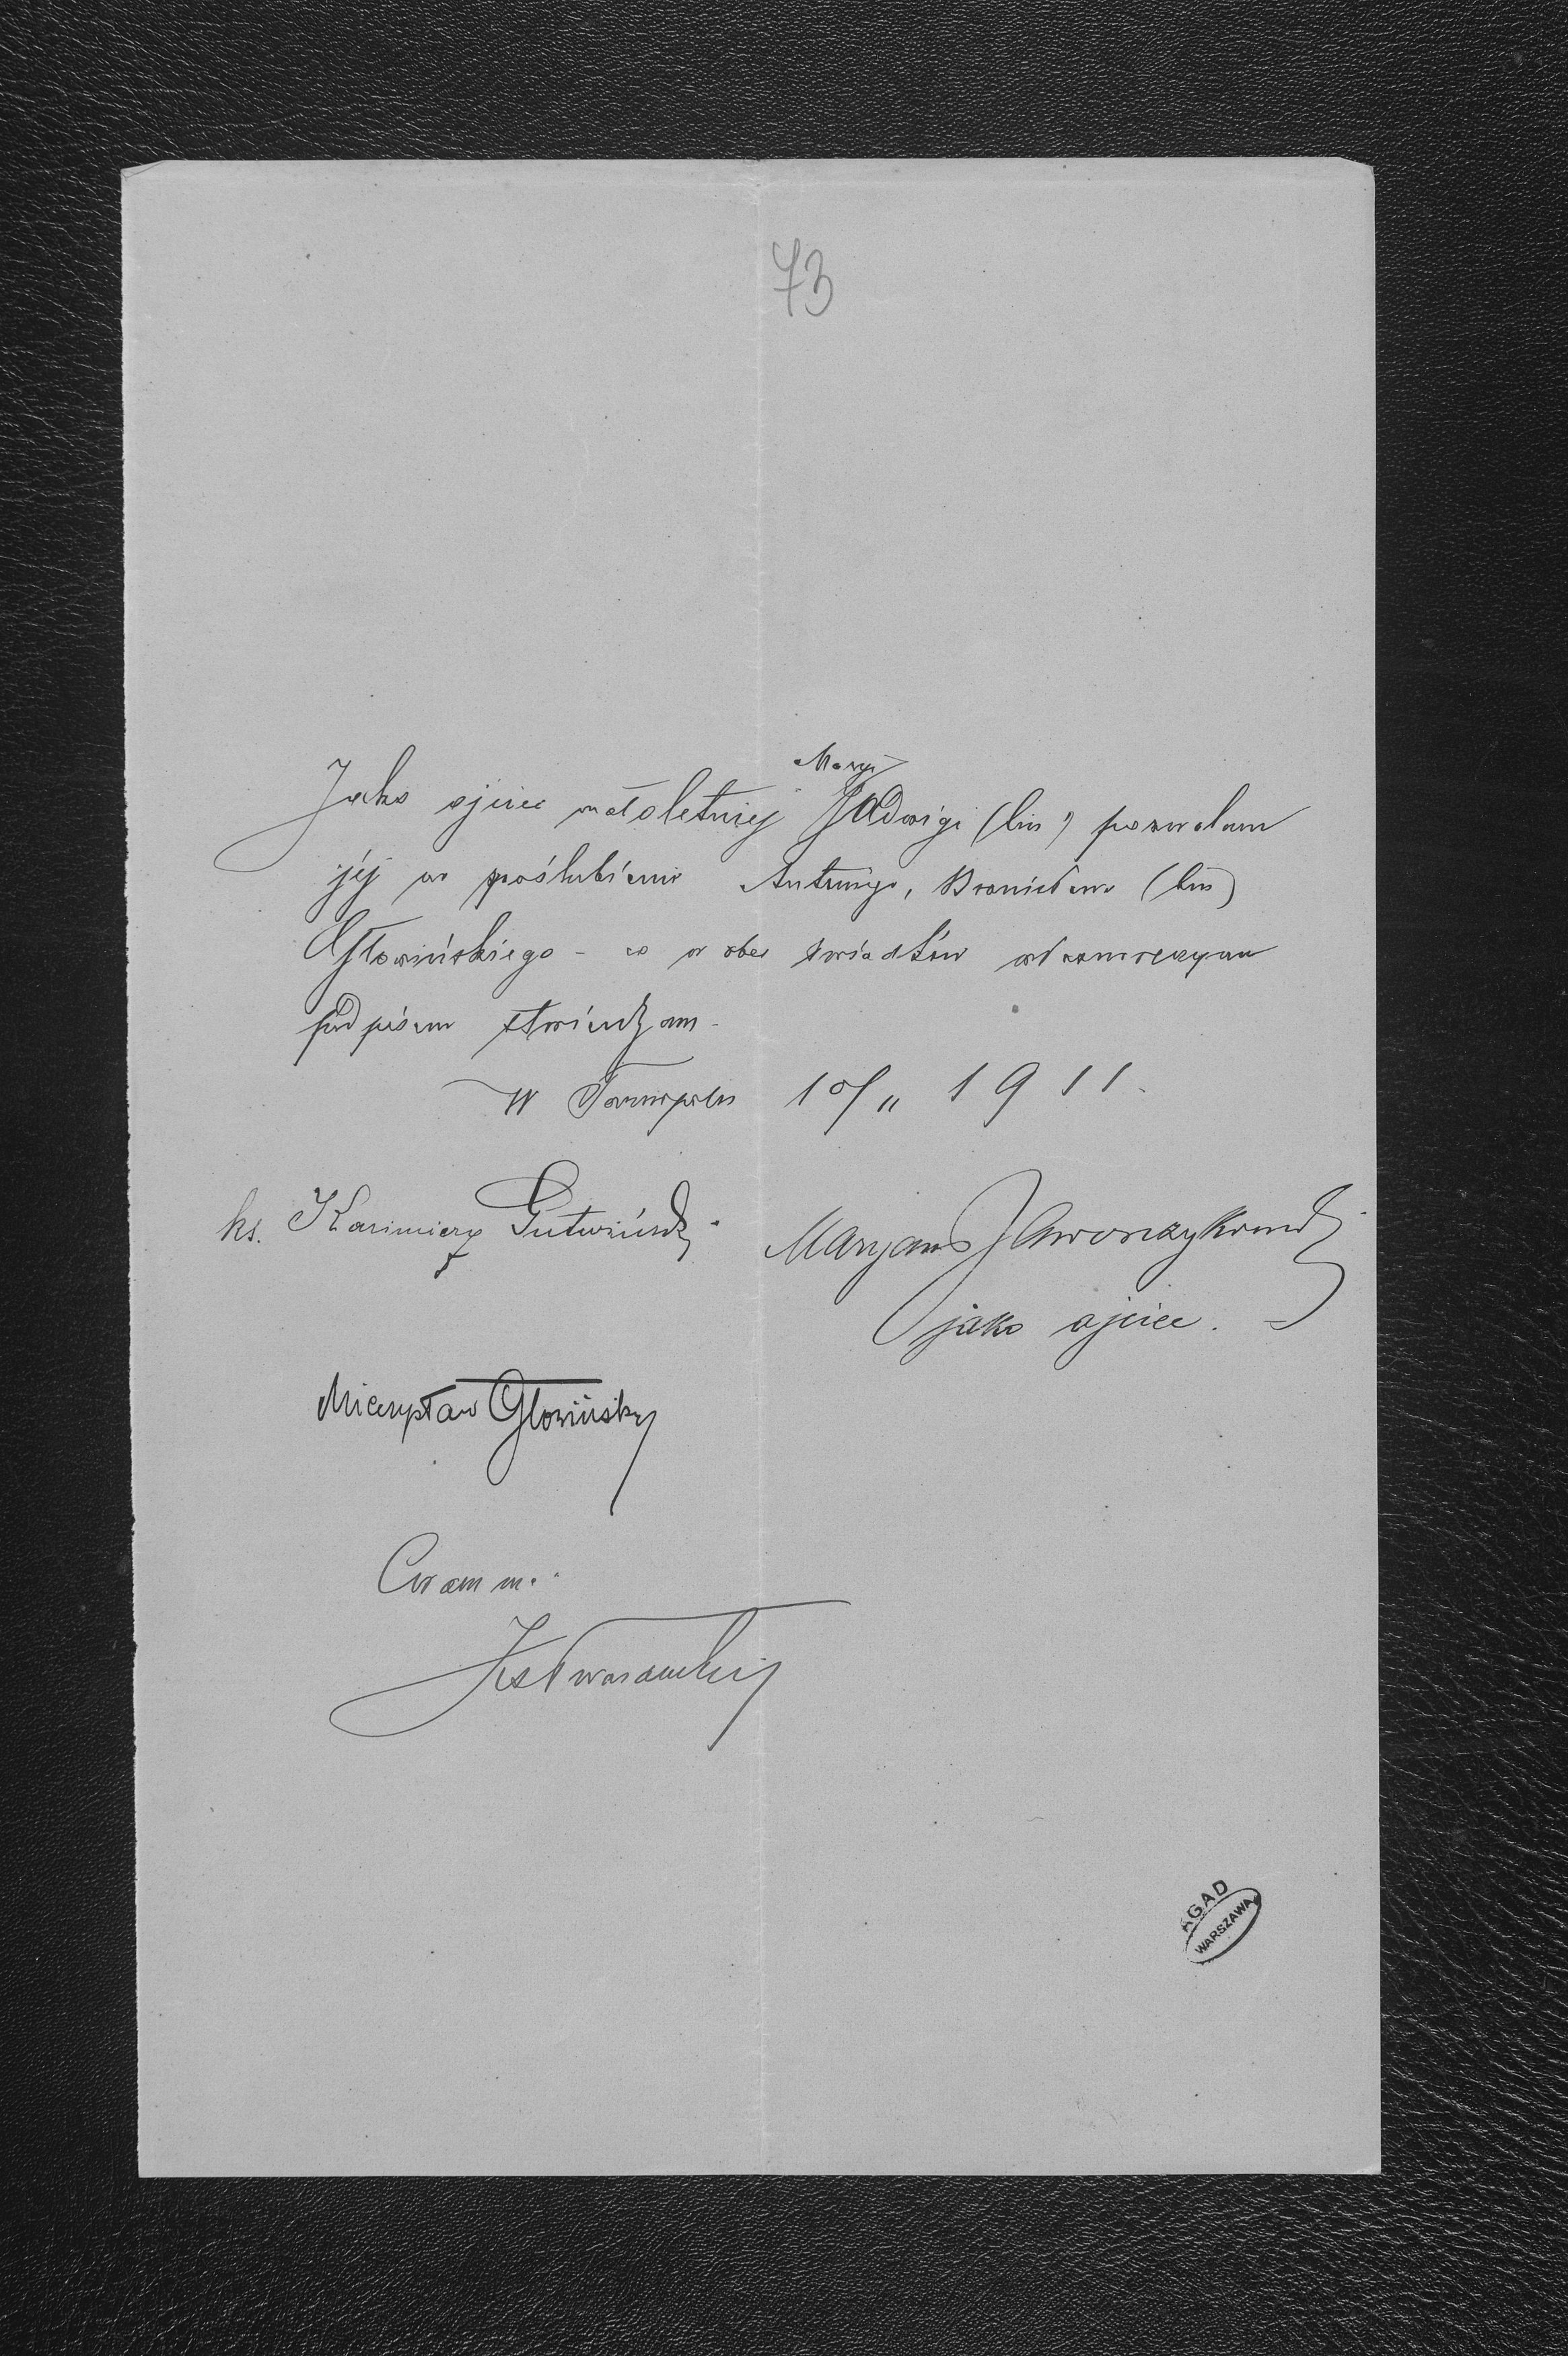 73
Maryi
Jako ojciec małoletniej Jadwigi (bin) pozwalam
jéj na poślubienie Antoniego, Bronisława (bin)
Głowińskiego - co w obec świadków własnoręcznym
podpisem stwierdzam.
W Tarnopolu 10/11 1911.
ks. Kazimierz Gutwiński.
Maryan Jaworczykowski
jako ojciec.
Mieczysław Głowiński
Coram me
AGAD
WARSZAWA